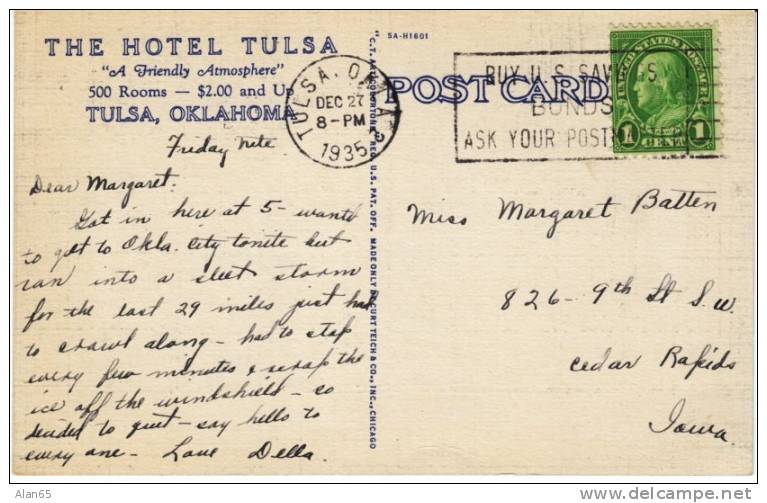 THE HOTEL TULSA
"A Friendly Atmosphere"
500 Rooms — $2.00 and Up
TULSA, OKLAHOMA
Friday nite
Dear Margaret:
Got in here at 5 - wanted
to get to Okla. City tonite but
ran into a sleet storm
for the last 29 miles just had
to crawl along - had to stop
every few minutes & scrap the
ice off the windshield - so
decided to quit - say hello to
every one - Love Della.
5A-H1601
"C.T. ART-COLORTONE" REG. U.S. PAT. OFF. MADE ONLY BY CURT TEICH & CO., INC., CHICAGO
POST CARD
TULSA, OKLA.
DEC 27
8-PM
1935
BUY U.S. SAVINGS
BONDS
ASK YOUR POST
UNITED STATES POSTAGE
FRANKLIN
1 CENT 1
Miss Margaret Batten
826 - 9th St S.W.
Cedar Rapids
Iowa.
Alan65
delcampe.net